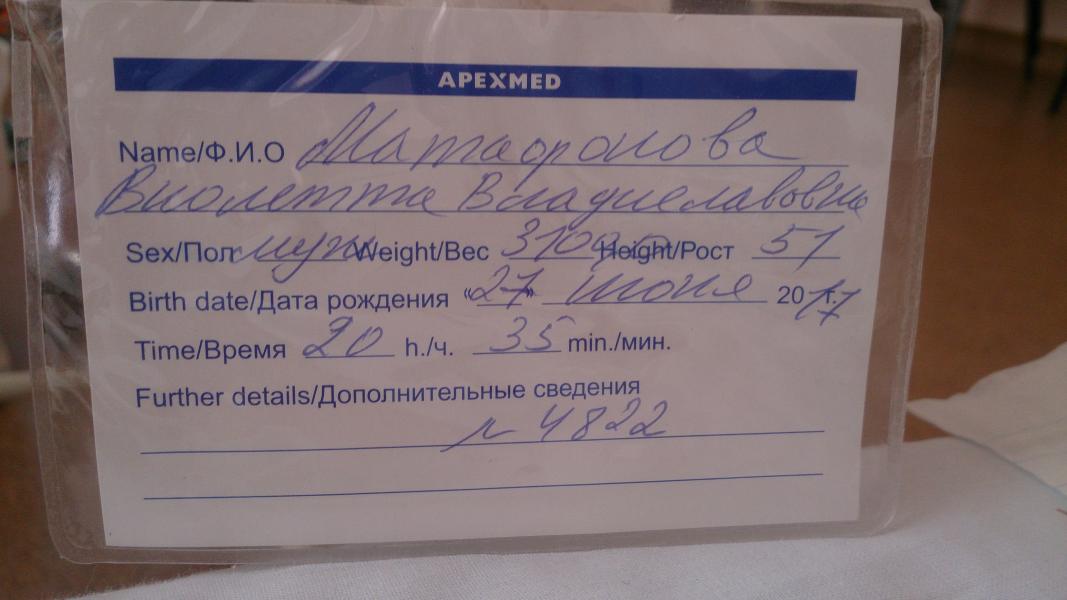 APEXMED
Name/Ф.И.О Матафонова
Виолетта Владиславовна
Sex/Пол муж Weight/Вес 3100 Height/Рост 51
Birth date/Дата рождения «27» июня 2017 г.
Time/Время 20 h./ч. 35 min./мин.
Further details/Дополнительные сведения
4822